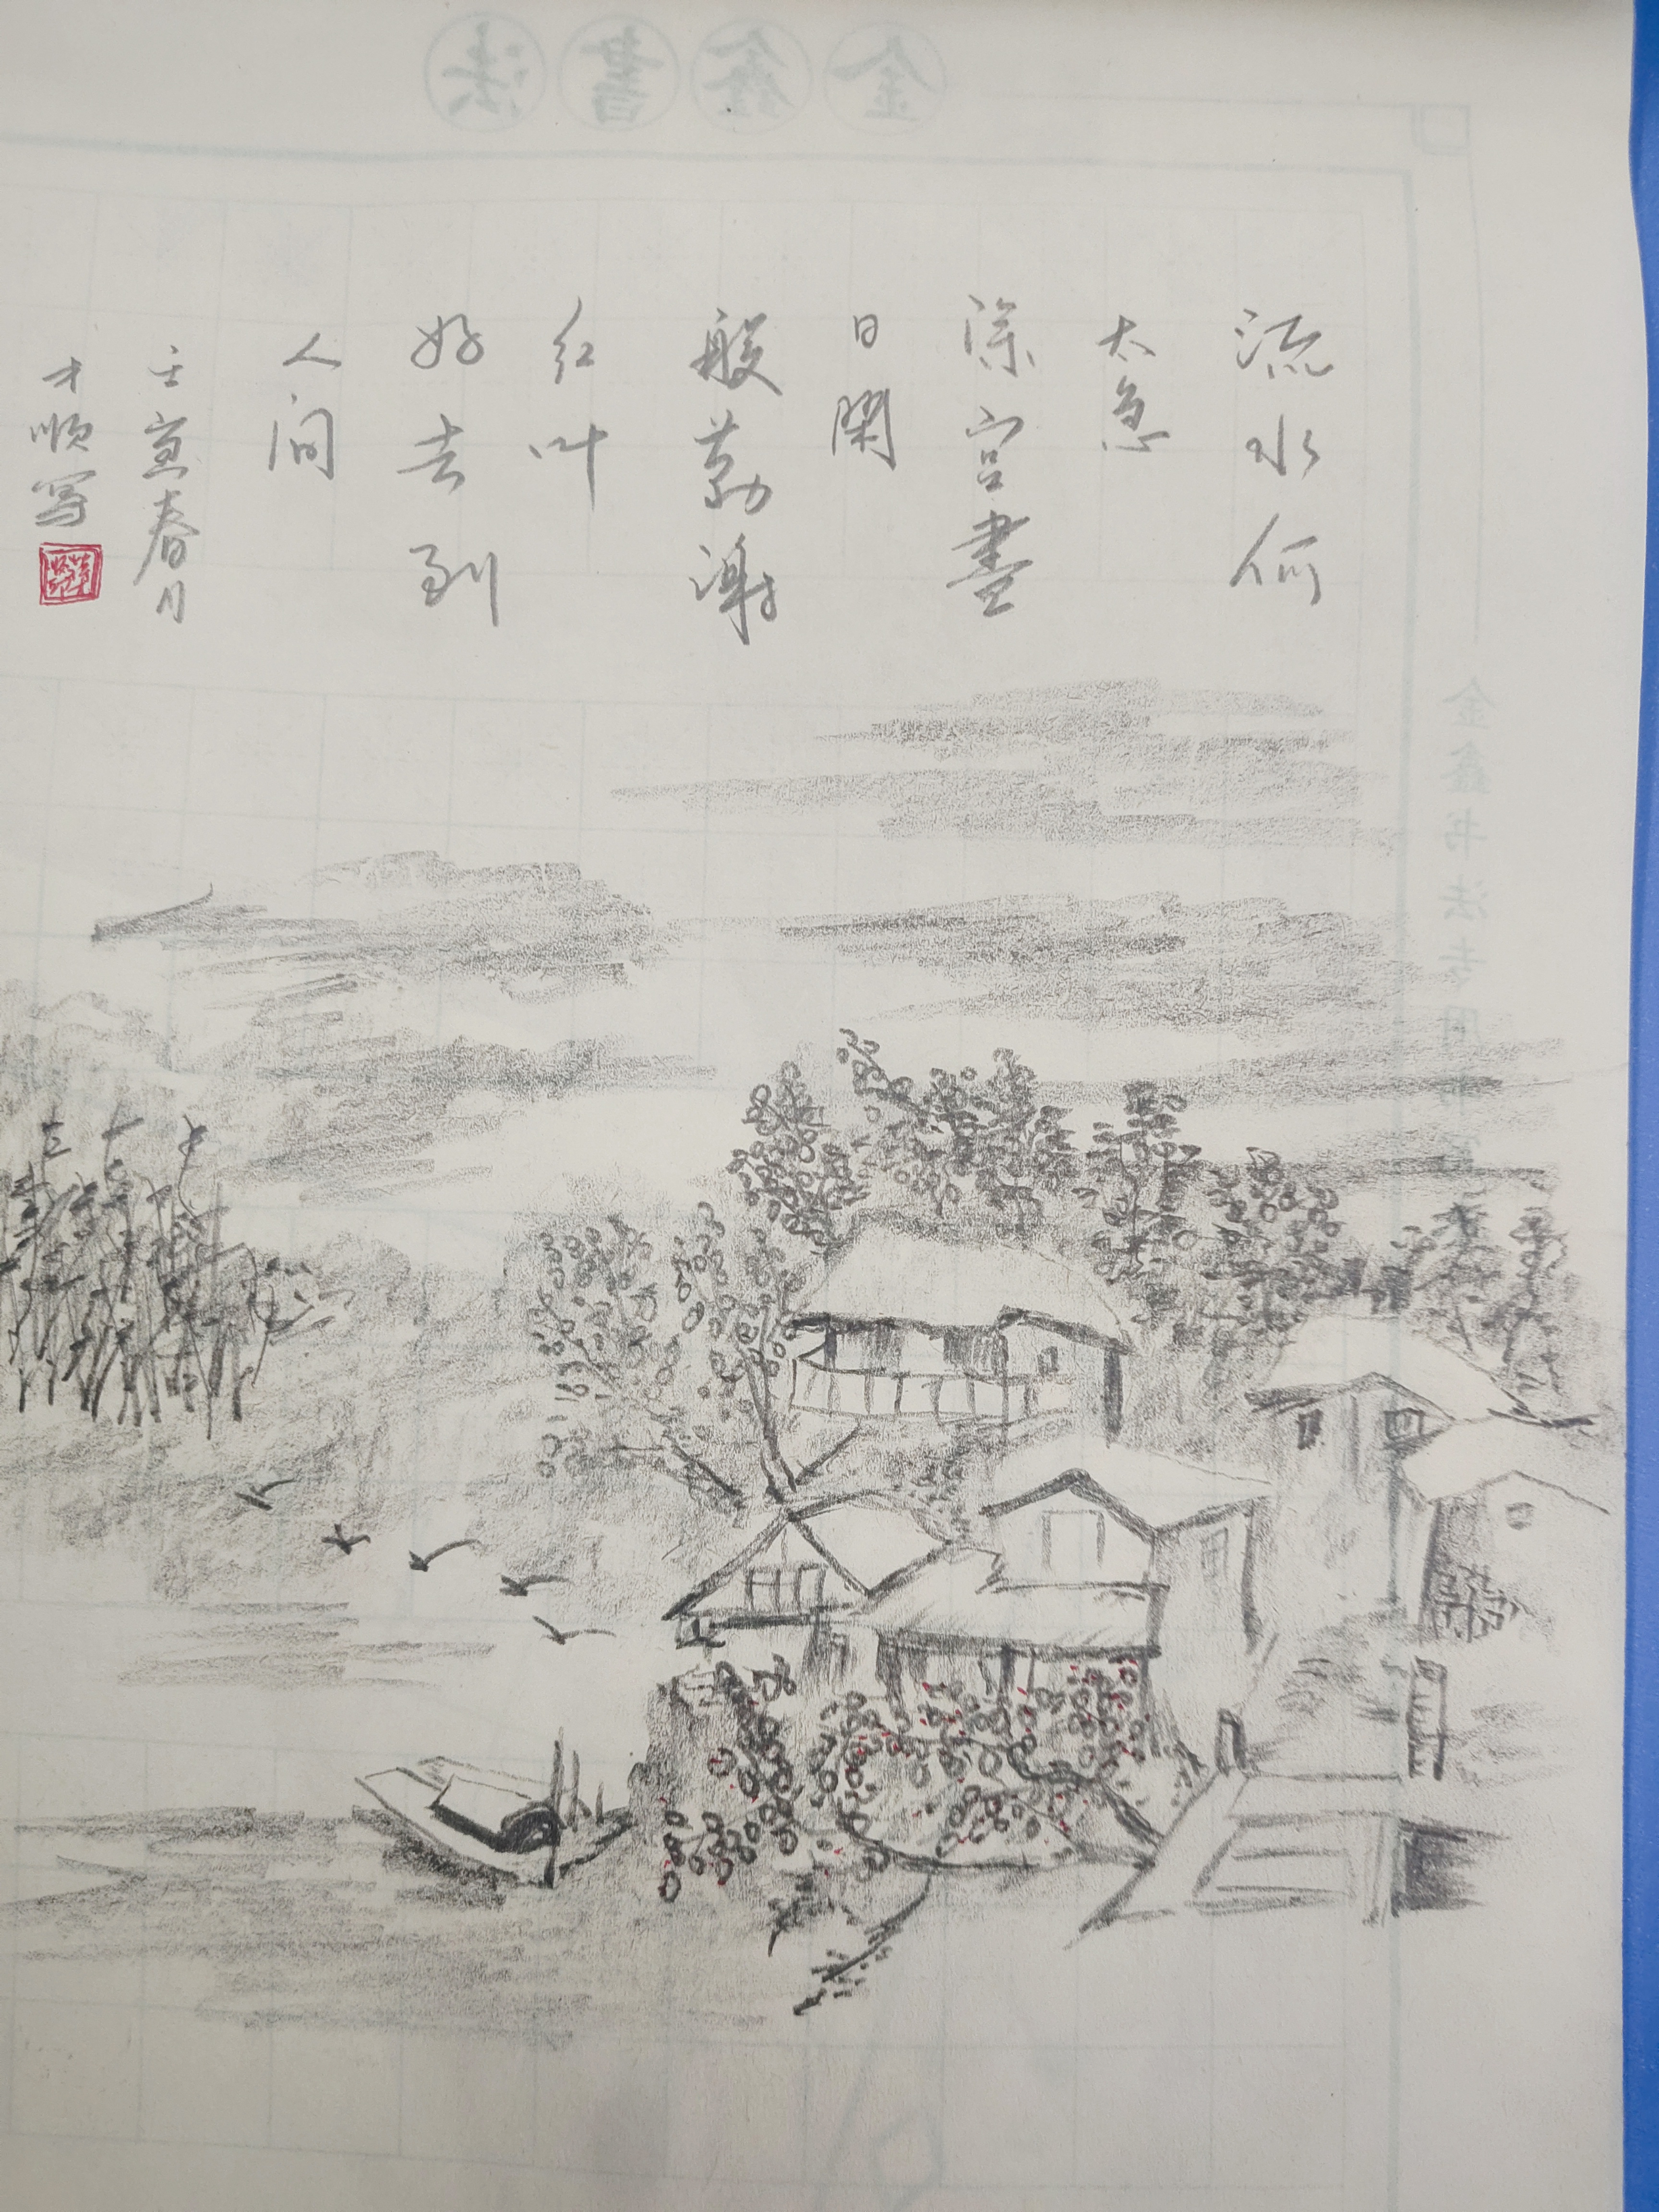 金鑫書法
金鑫书法
流水何
太急
深宫盡
日閑
殷勤謝
红叶
好去到
人间
壬寅春月
才顺写